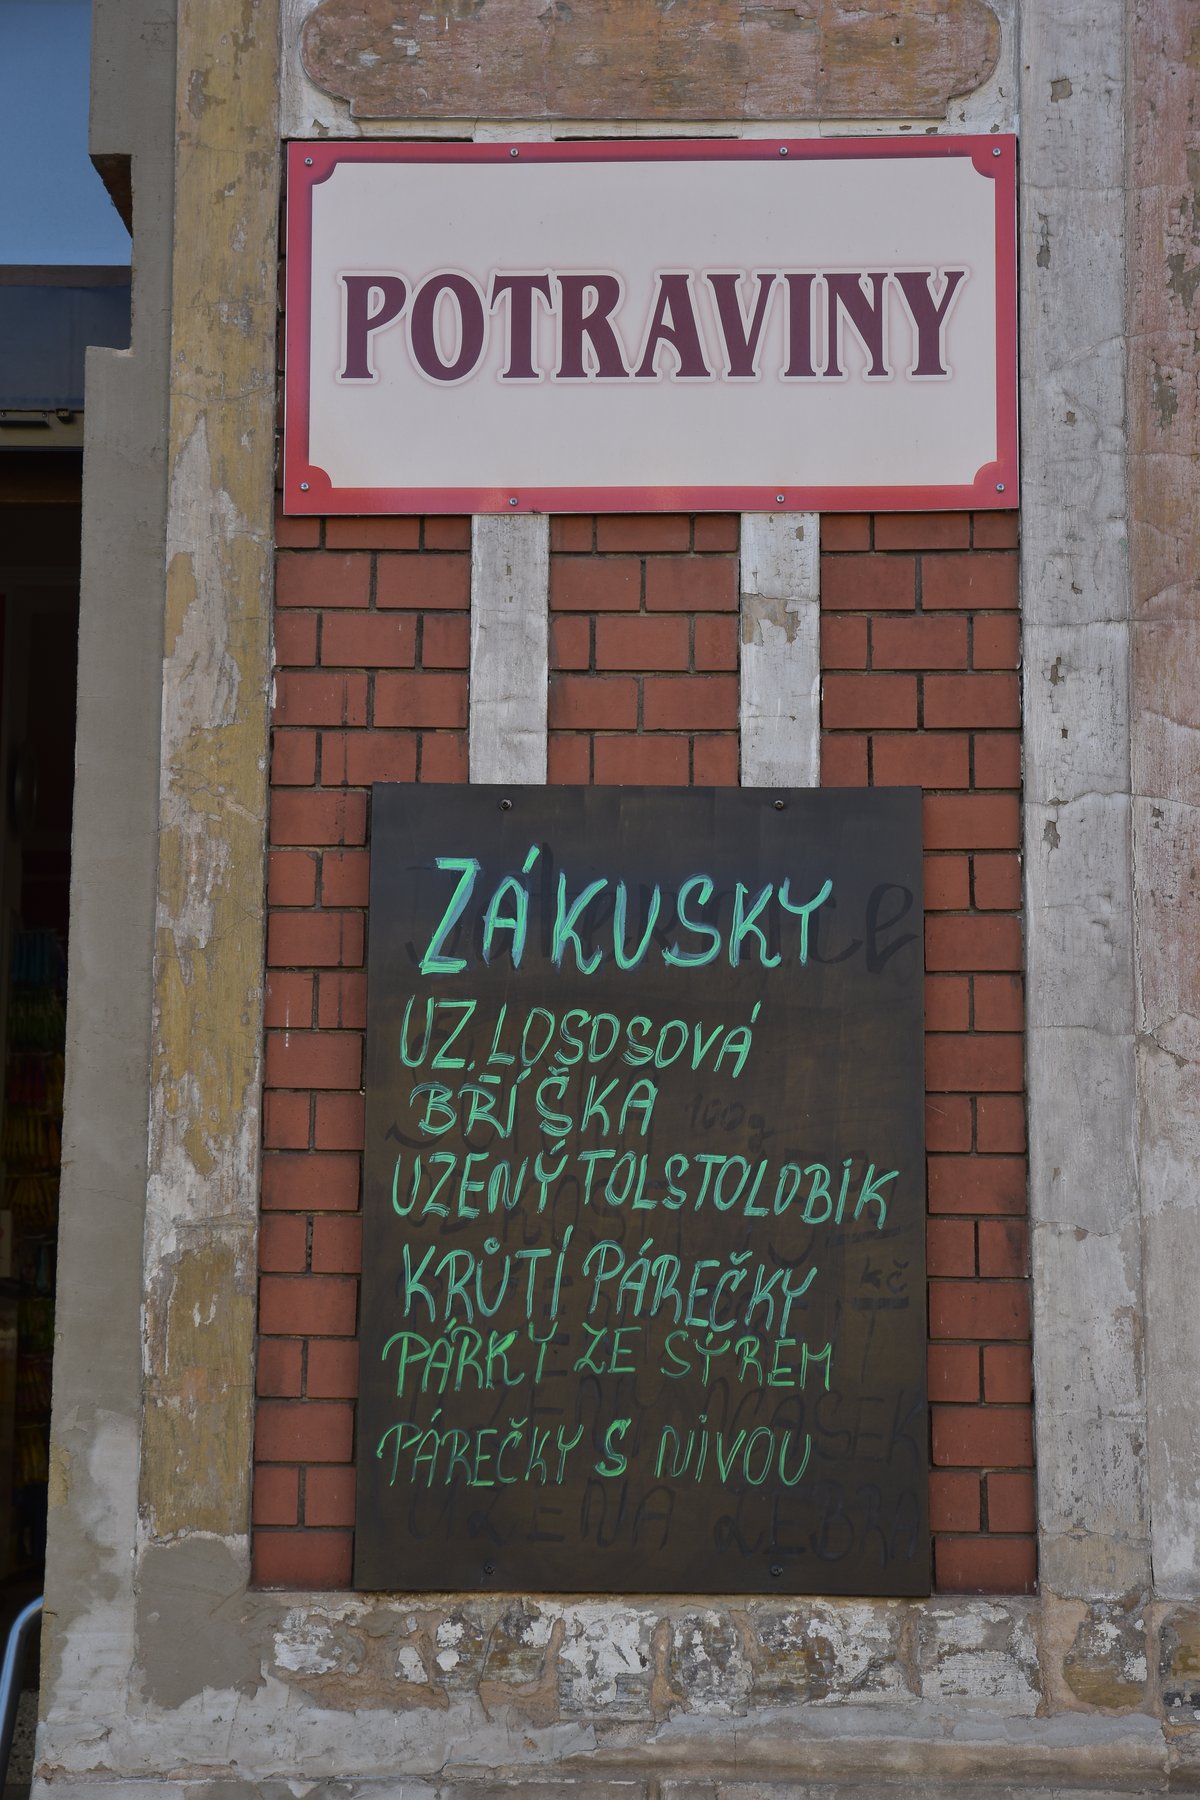 POTRAVINY
ZÁKUSKY
UZ. LOSOSOVÁ
BŘÍŠKA
UZENÝ TOLSTOLOBIK
KRŮTÍ PÁREČKY
PÁRKY ZE SÝREM
PÁREČKY S NIVOU